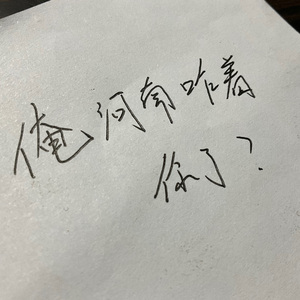 俺河南咋着
你了?